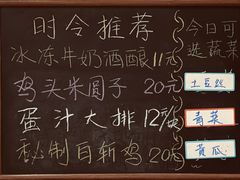 时令推荐
冰冻牛奶酒酿11元
鸡头米圆子 20元
蛋汁大排 12元
秘制目斩鸡 20元
今日可
选蔬菜
土豆丝
青菜
黄瓜